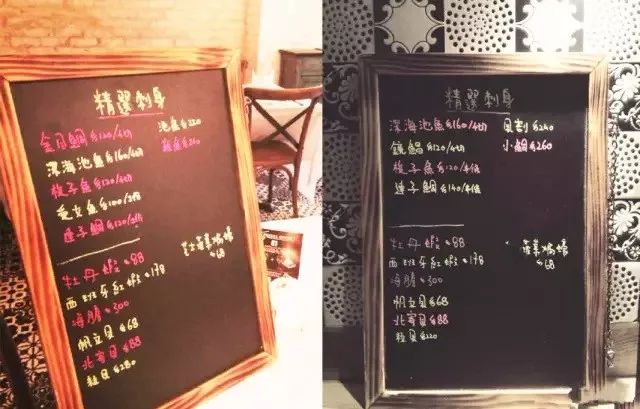 精選刺身
金目鯛 $120/4切
深海池魚 $160/4切
梭子魚 $120/4切
$100/2個
蓮子鯛 $120/3切
池魚 $220
$260
牡丹蝦 $88
西班牙紅蝦 $178
海膽 $300
帆立貝 $68
北寄貝 $88
粒貝 $280
$68
精選刺身
深海池魚 $160/4切
鏡鯧 $120/4切
梭子魚 $120/4切
蓮子鯛 $140/4切
貝割 $240
小鯛 $260
牡丹蝦 $88
西班牙紅蝦 $178
海膽 $300
帆立貝 $68
北寄貝 $88
粒貝 $220
$68